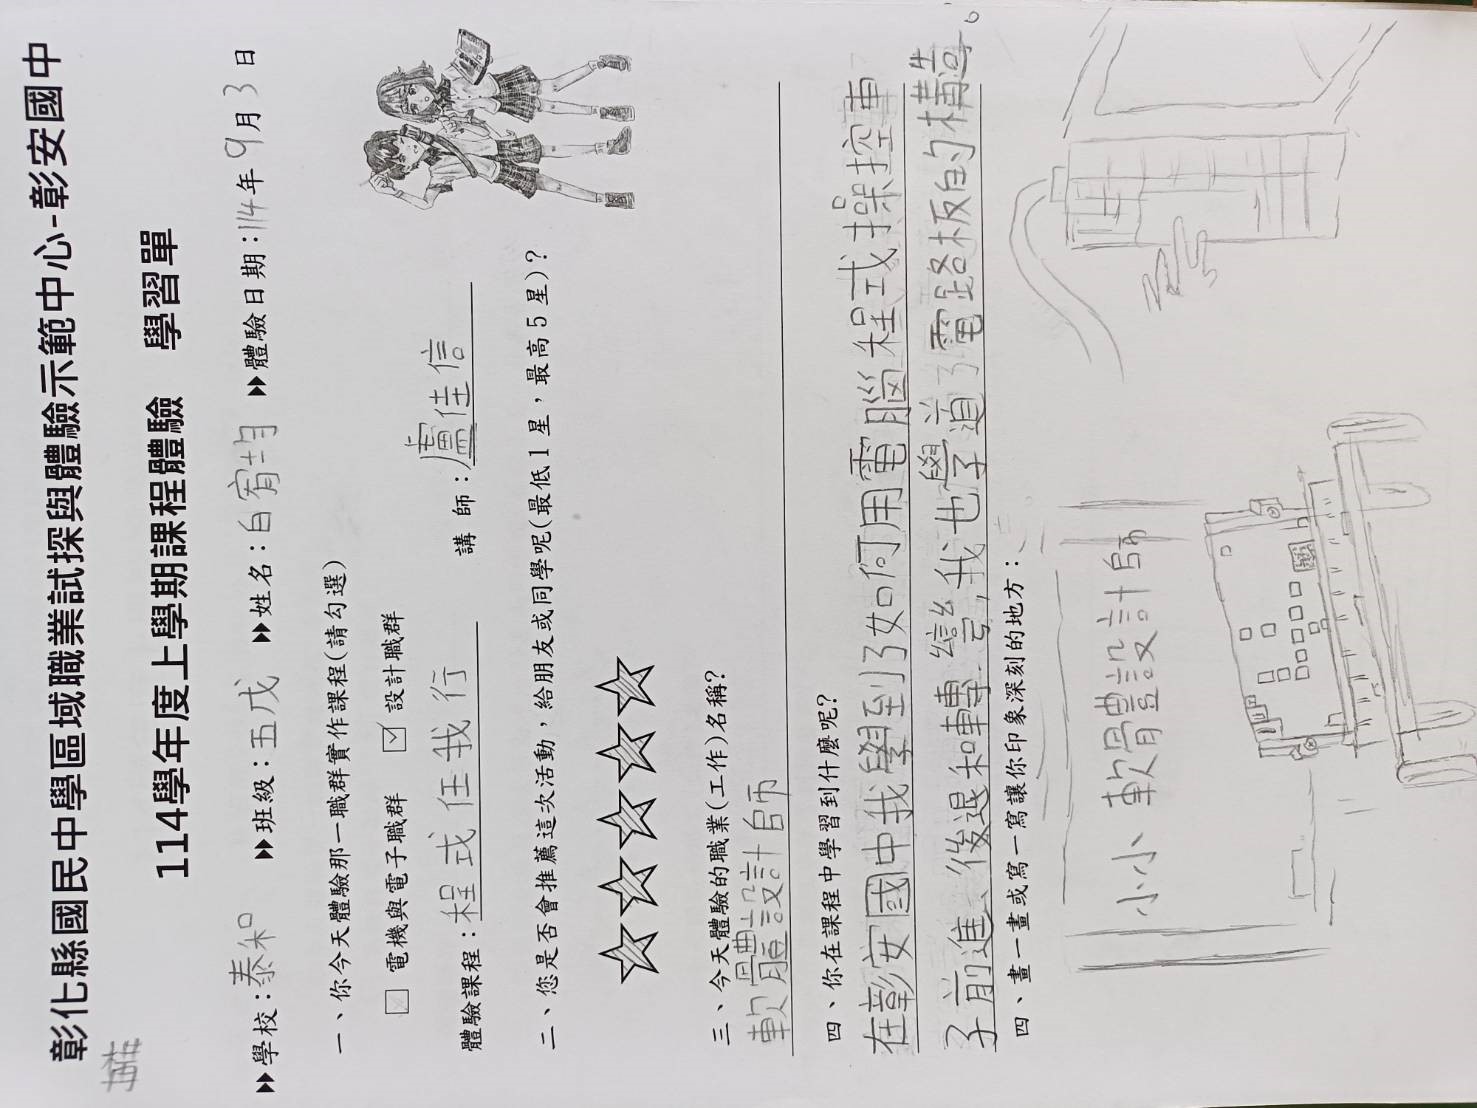 彰化縣國民中學區域職業試探與體驗示範中心-彰安國中
114學年度上學期課程體驗 學習單
▸▸學校：泰和 ▸▸班級：五戊 ▸▸姓名：白宥均 ▸▸體驗日期：114年9月3日
一、你今天體驗那一職群實作課程(請勾選)
□ 電機與電子職群 ☑ 設計職群
體驗課程：程式任我行 講 師：盧佳信
二、您是否會推薦這次活動，給朋友或同學呢(最低1星，最高5星)?
三、今天體驗的職業(工作)名稱?
軟體設計師
四、你在課程中學習到什麼呢?
在彰安國中我學到了如何用電腦程式操控車
子前進、後退和轉彎，我也學道了電路板的構造。
四、畫一畫或寫一寫讓你印象深刻的地方：
小小軟體設計師